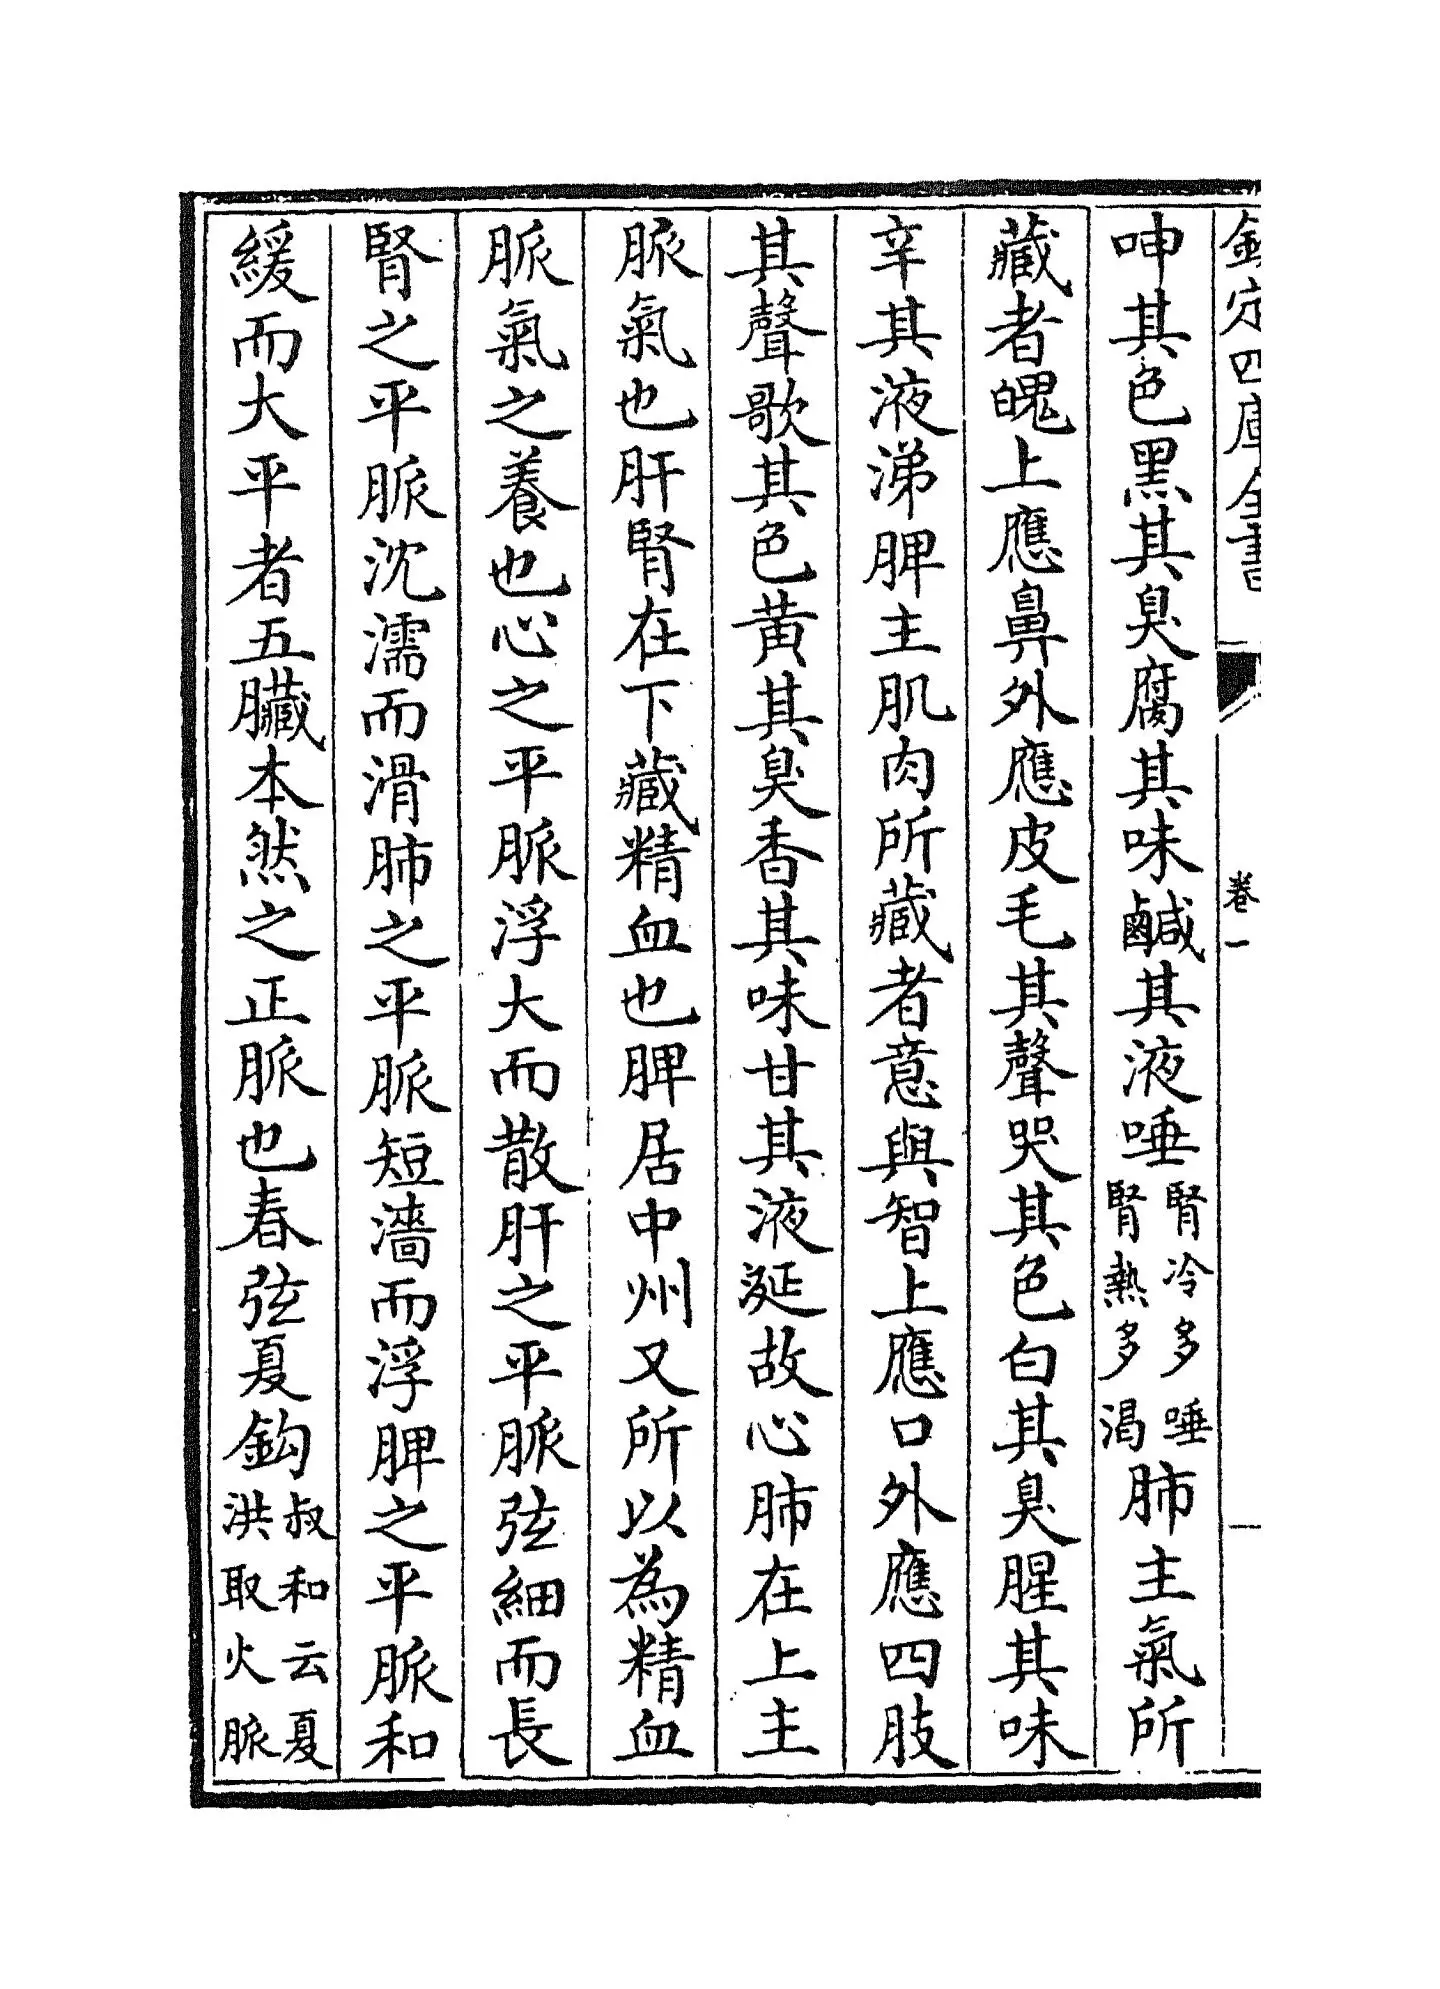 欽定四庫全書
卷一
呻其色黑其臭腐其味鹹其液唾腎冷多唾腎熱多渴肺主氣所
藏者魄上應鼻外應皮毛其聲哭其色白其臭腥其味
辛其液涕脾主肌肉所藏者意與智上應口外應四肢
其聲歌其色黃其臭香其味甘其液涎故心肺在上主
脈氣也肝腎在下藏精血也脾居中州又所以為精血
脈氣之養也心之平脈浮大而散肝之平脈弦細而長
腎之平脈沈濡而滑肺之平脈短濇而浮脾之平脈和
緩而大平者五臟本然之正脈也春弦夏鈎叔和云夏洪取火脈